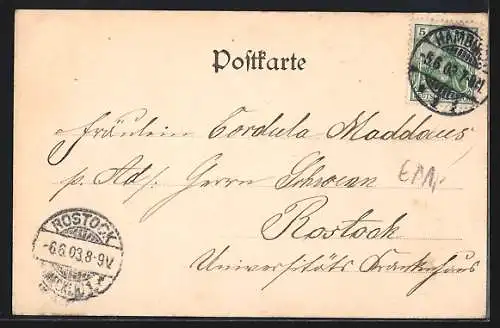 Postkarte
5
HAMBURG
-5.6.03.
Fräulein Cordula Maddaus
p. Adr. Herrn Schwenn
Rostock
Universitäts Krankenhaus
ROSTOCK
-6.6.03.8-9V.
(MECKLB.)
1